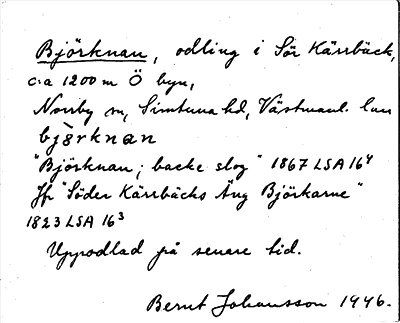 Björknan, odling i Sör Kärrbäck,
c:a 1200 m Ö byn,
Norrby sn, Simtuna hd, Västmanl. län
bjö̀rknan
"Björknan; backe slog" 1867 LSA 16⁴
Jfr "Söder Kärrbäcks Äng Björkarne"
1823 LSA 16³
Uppodlad på senare tid.
Bernt Johansson 1946.